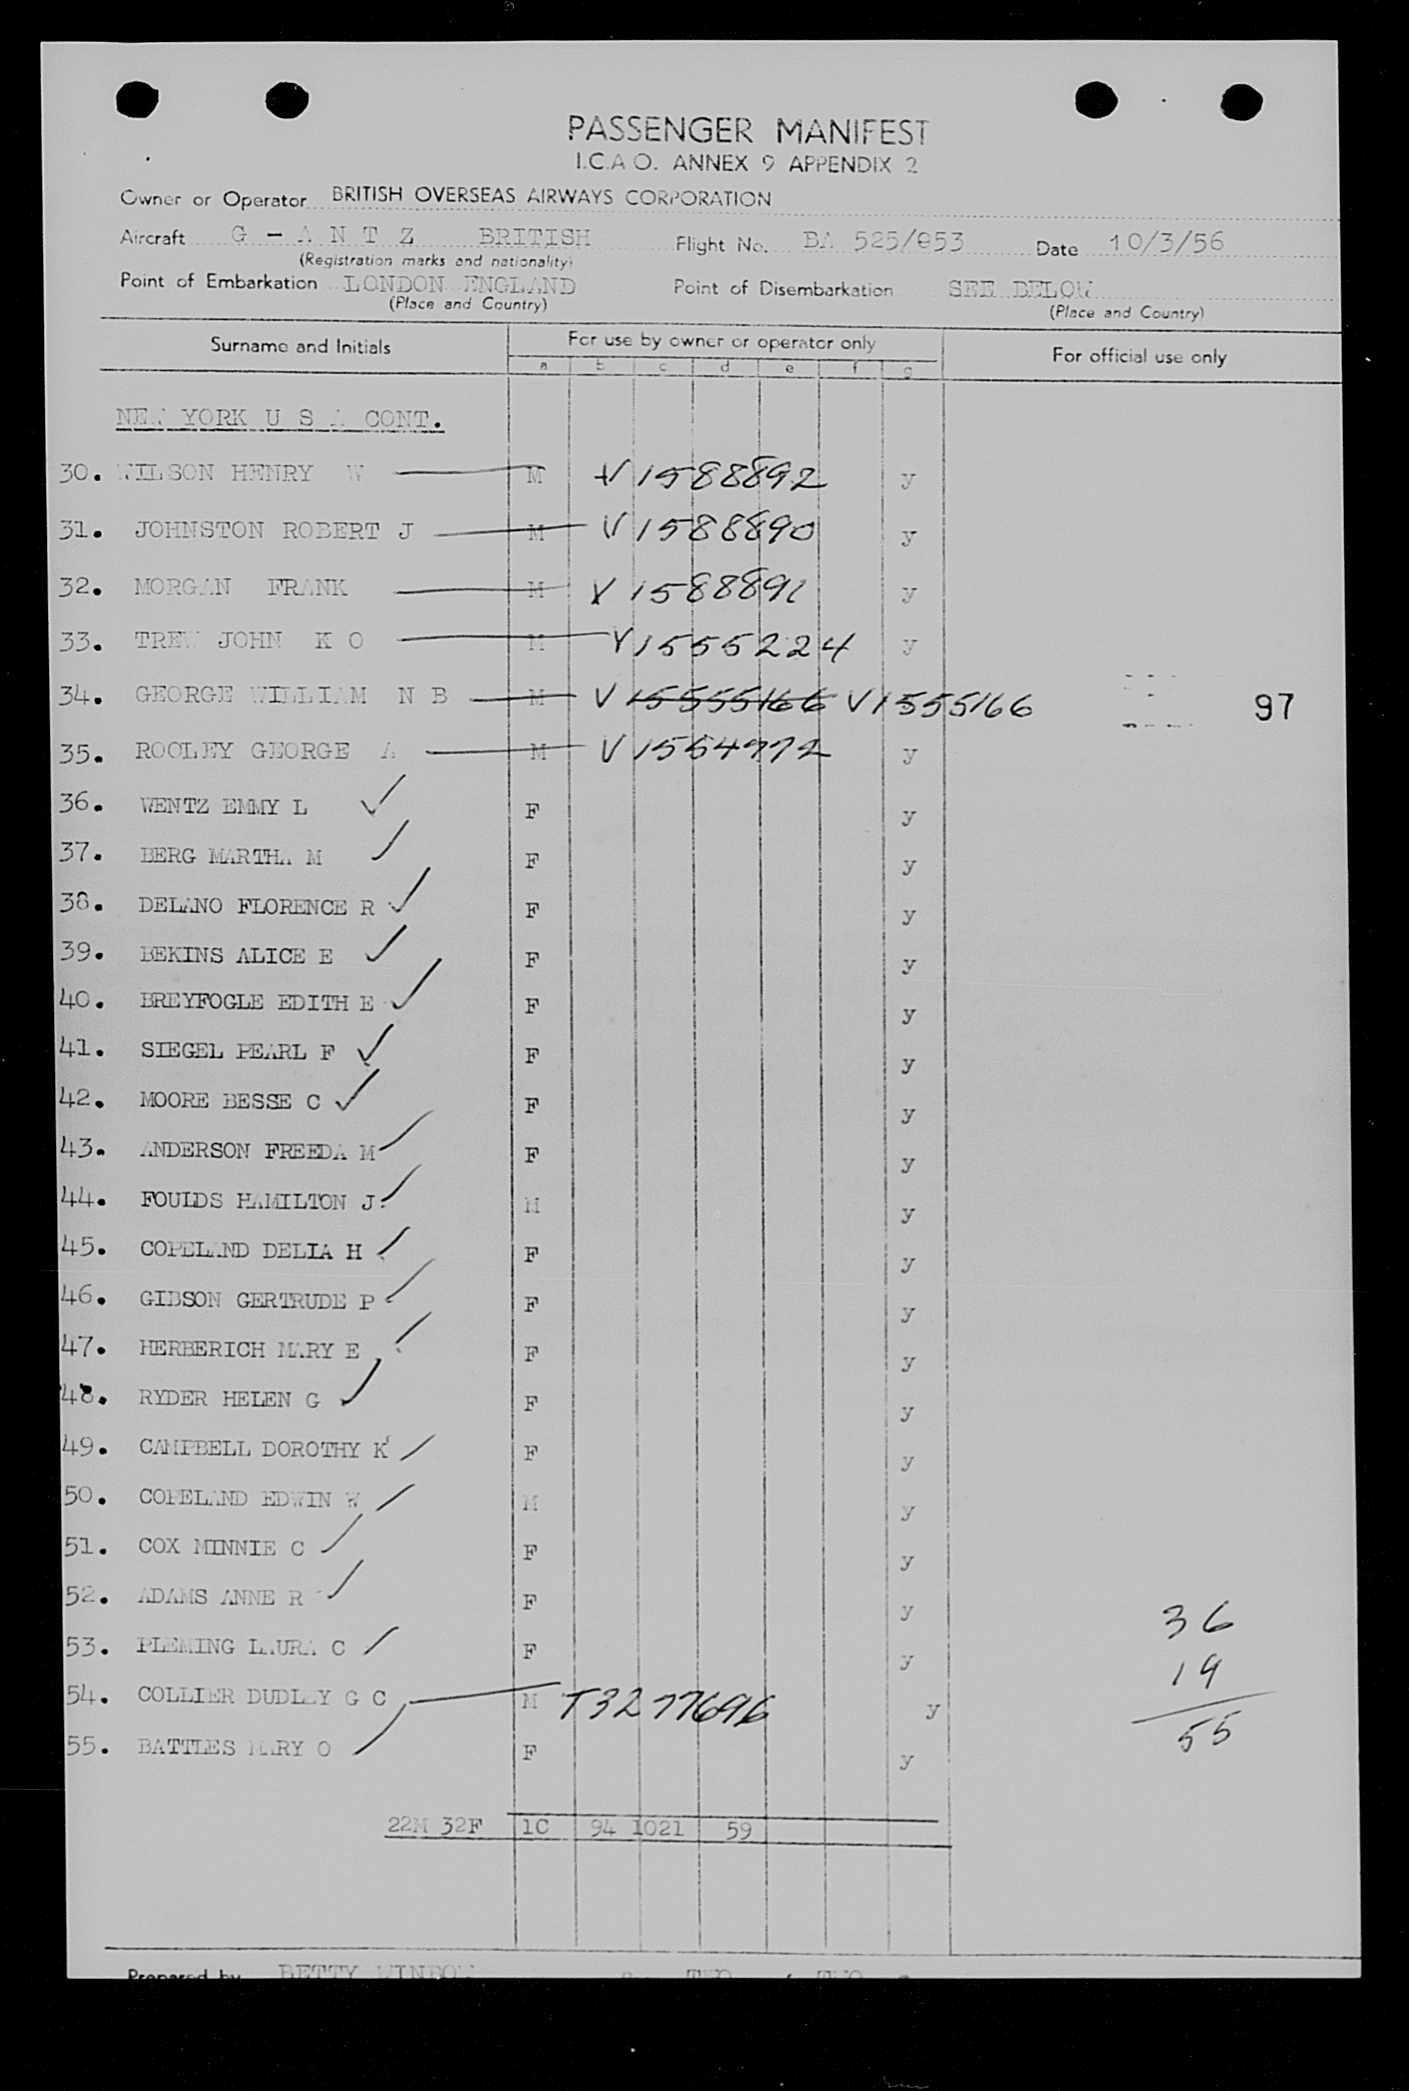 PASSENGER MANIFEST
I.C.A.O. ANNEX 9 APPENDIX 2
Owner or Operator BRITISH OVERSEAS AIRWAYS CORPORATION
Aircraft G - A N T Z BRITISH Flight No. BA 525/853 Date 10/3/56
(Registration marks and nationality)
Point of Embarkation LONDON ENGLAND Point of Disembarkation SEE BELOW
(Place and Country) (Place and Country)
Surname and Initials For use by owner or operator only For official use only
a b c d e f g
NEW YORK U S A CONT.
30. WILSON HENRY W M V1588892 y
31. JOHNSTON ROBERT J M V1588890 y
32. MORGAN FRANK M V1588891 y
33. TREW JOHN K O M V1555224 y
34. GEORGE WILLIAM N B M V15555166 V1555166 97
35. ROOLEY GEORGE A M V1554772 y
36. WENTZ EMMY L F y
37. BERG MARTHA M F y
38. DELANO FLORENCE R F y
39. BEKINS ALICE E F y
40. BREYFOGLE EDITH E F y
41. SIEGEL PEARL F F y
42. MOORE BESSE C F y
43. ANDERSON FREEDA M F y
44. FOULDS HAMILTON J. M y
45. COPELAND DELIA H F y
46. GIBSON GERTRUDE P F y
47. HERBERICH MARY E F y
48. RYDER HELEN G F y
49. CAMPBELL DOROTHY K F y
50. COPELAND EDWIN W M y
51. COX MINNIE C F y
52. ADAMS ANNE R F y
36
53. PLEMING LAURA C F y
19
54. COLLIER DUDLEY G C M T3277696 y
55
55. BATTLES MARY O F y
22M 32F 1C 94 1021 59
Prepared by BETTY WINBOW TWO TWO